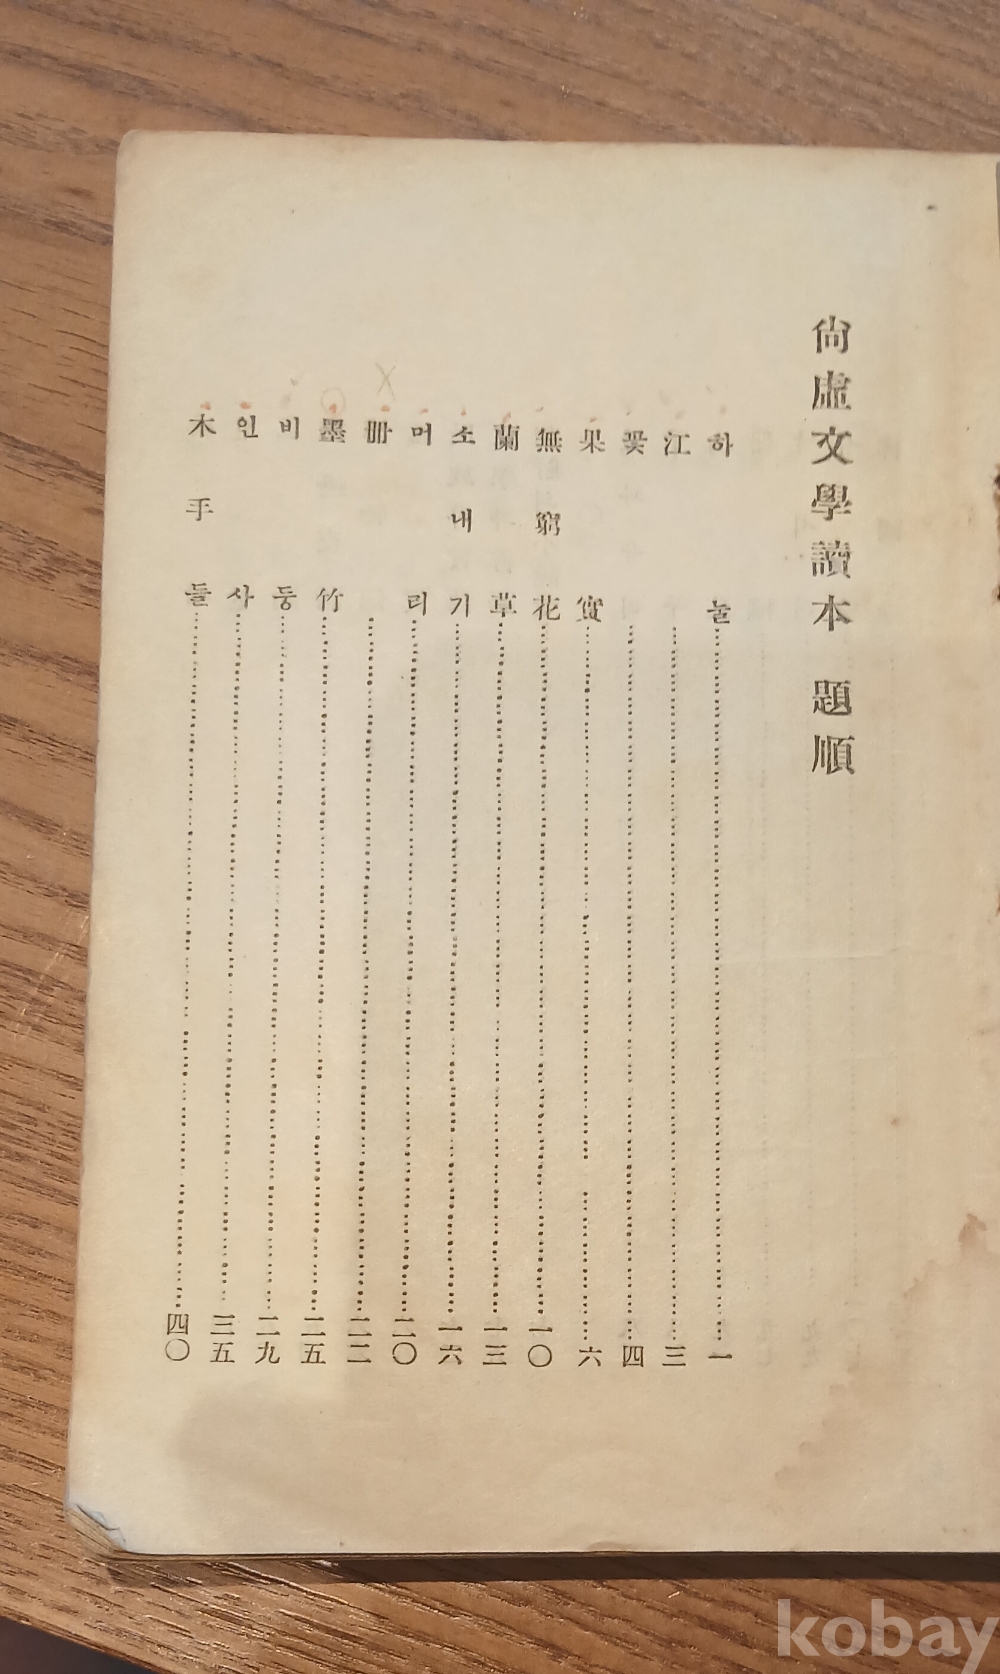 尙虛文學讀本 題順
하눌 一
江 三
꽃 四
果實 六
無窮花 一〇
蘭草 一三
소내기 一六
머리 二〇
冊 二二
墨竹 二五
비둥 二九
인사 三五
木手들 四〇
kobay